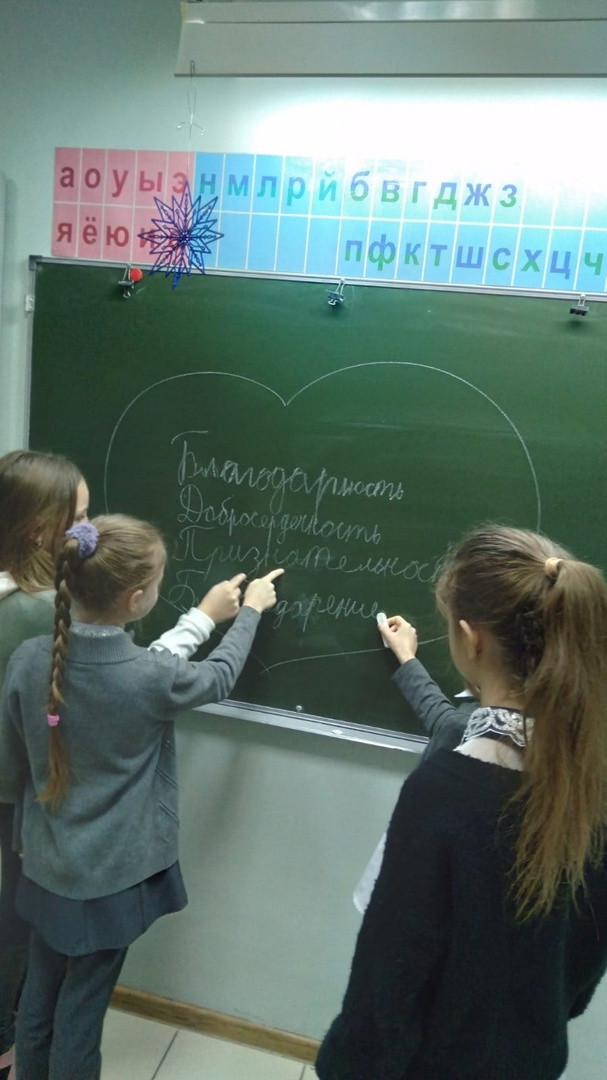 а о у ы э н м л р й б в г д ж з
я ё ю и п ф к т ш с х ц ч
Благодарность
Добросердечность
Признательнос